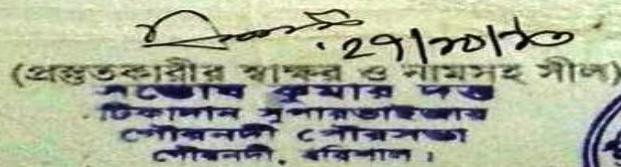 ২৭/১০/২০
(প্রস্তুতকারীর স্বাক্ষর ও নামসহ সীল)
সন্তোষ কুমার দত্ত
টিকাদান সুপারভাইজার
গৌরনদী পৌরসভা
গৌরনদী, বরিশাল।